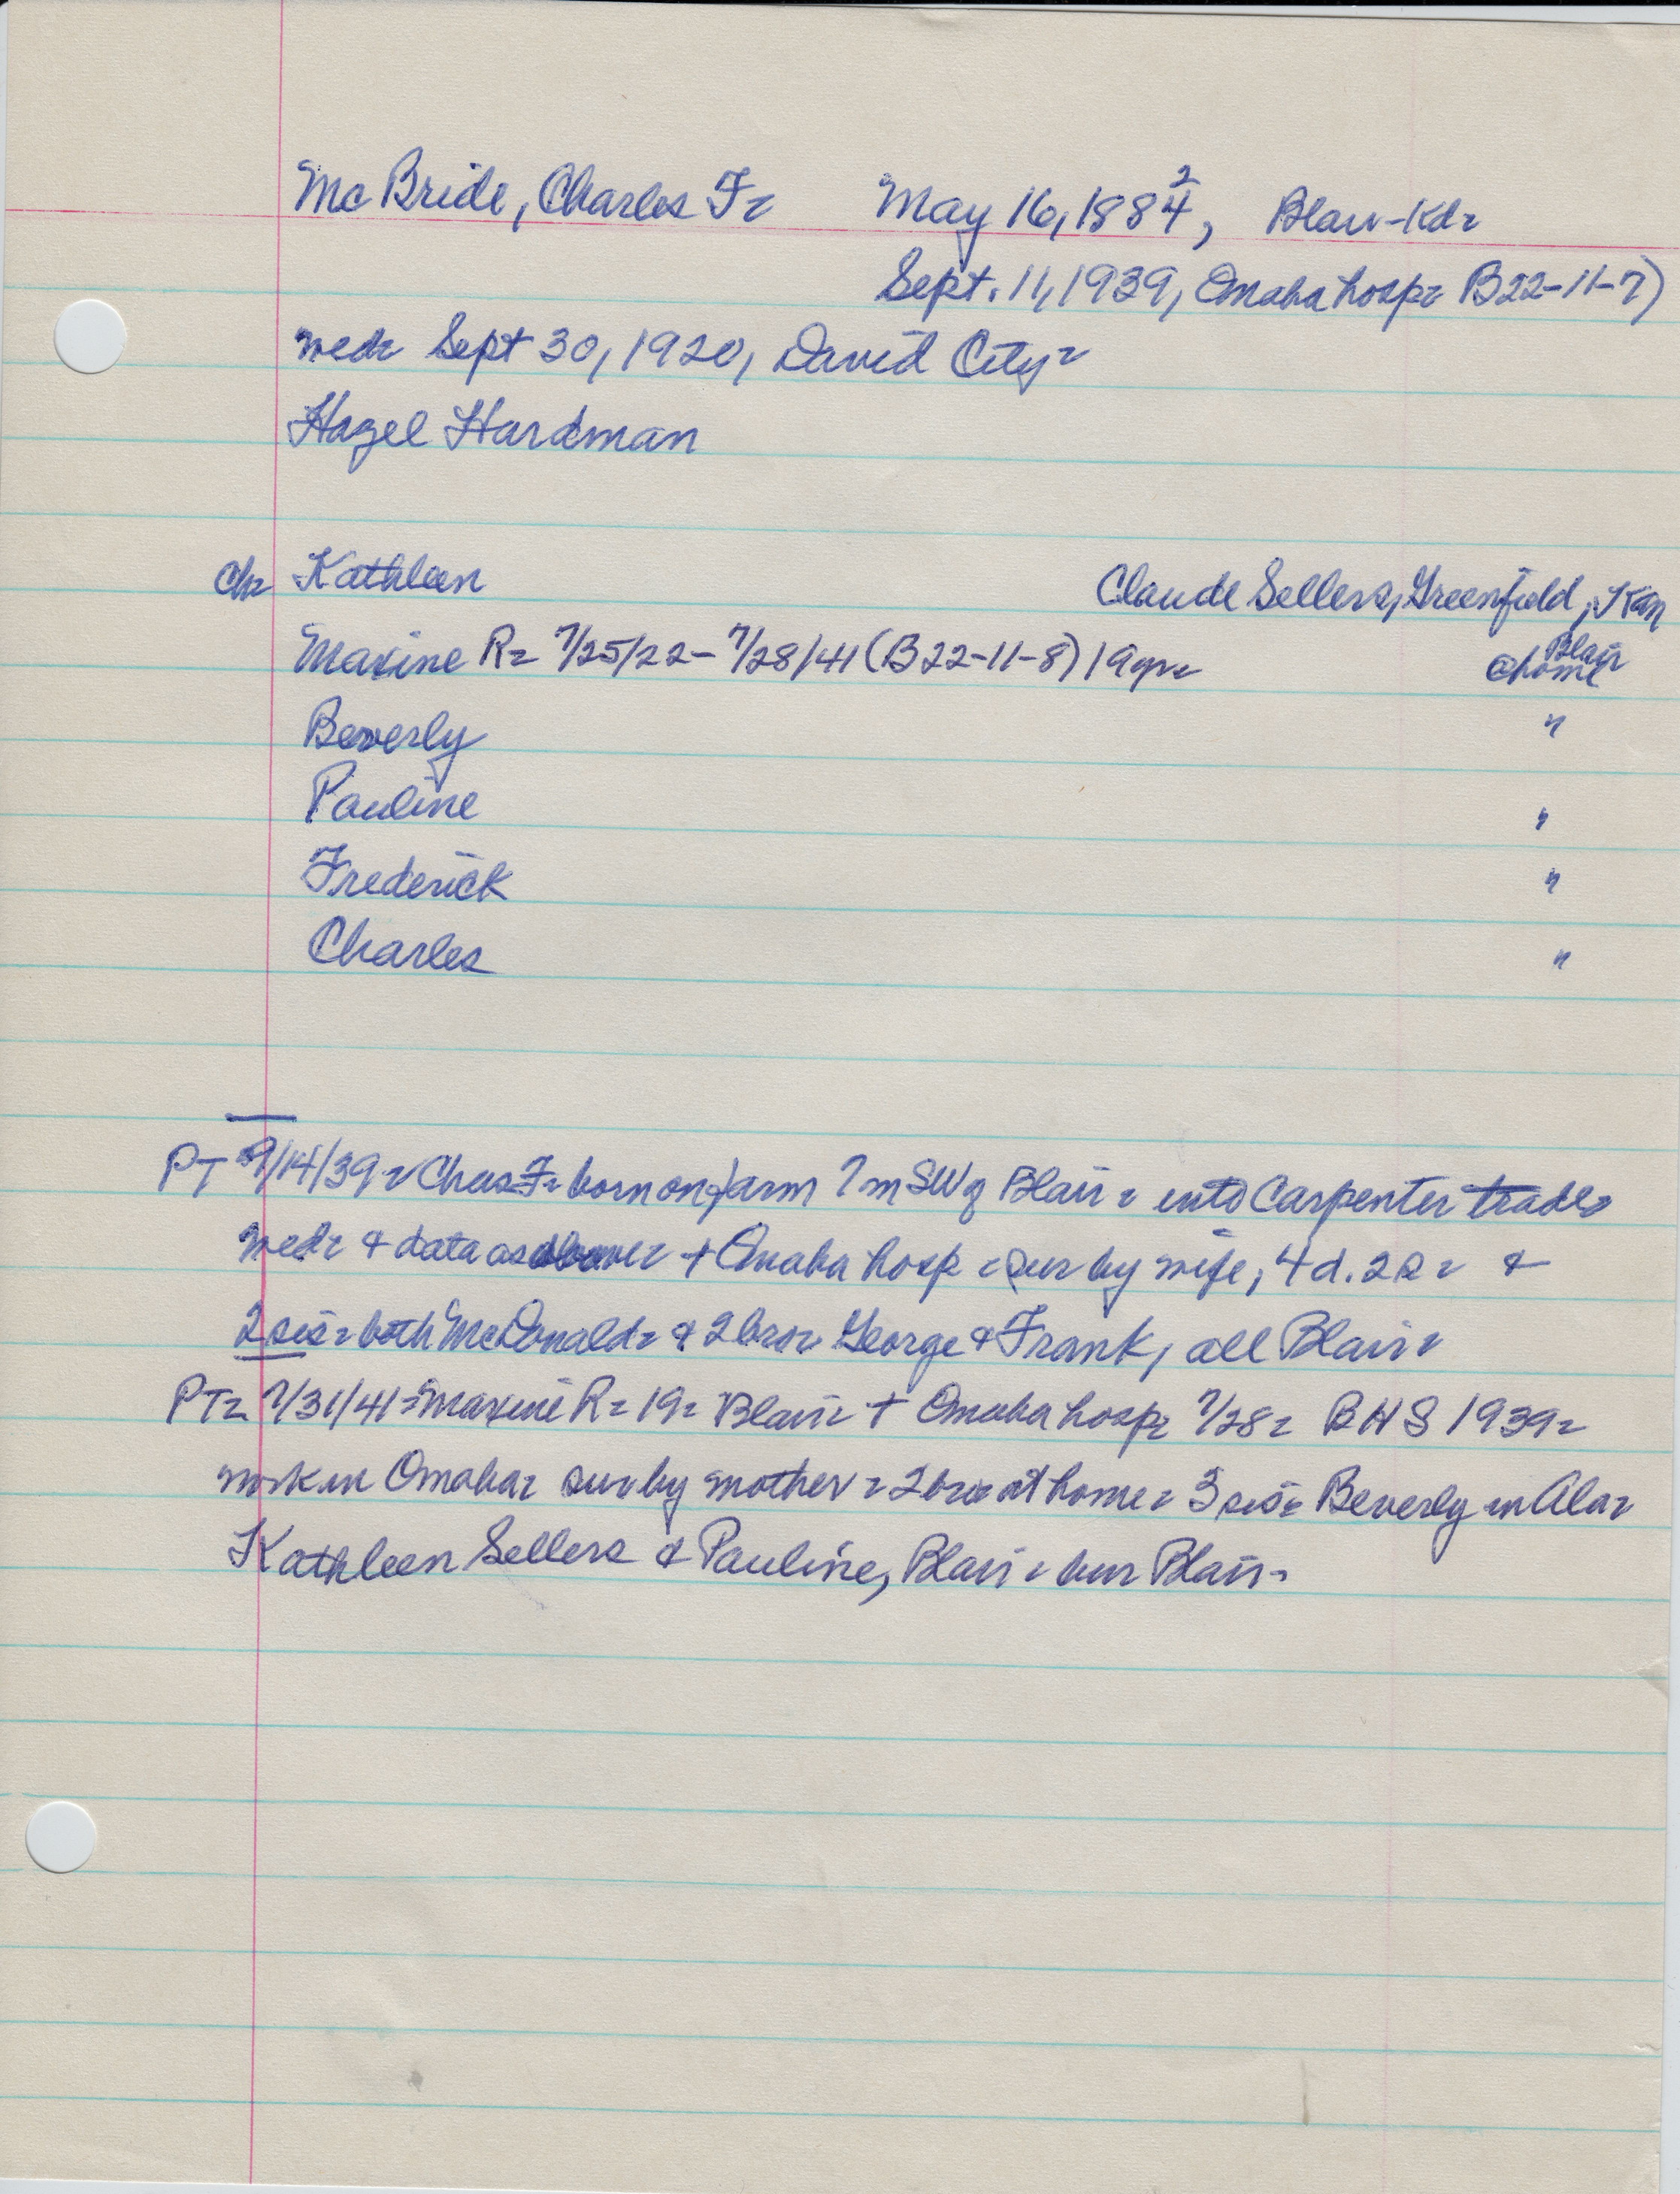 McBride, Charles F. May 16, 1884, 2 Blair-Kd.
Sept. 11, 1939, Omaha hosp. B22-11-7)
wed. Sept 30, 1920, David City.
Hazel Hardman
Ch. Kathleen Claude Sellers, Greenfield, Kan
Maxine R. 7/25/22-7/28/41 (B22-11-8) 19yr. @home Blair
Beverly "
Pauline "
Frederick "
Charles "
PT 9/14/39. Chas F. born on farm 7 m SW of Blair. into Carpenter trade.
wed. & data as above. + Omaha hosp. sur by wife, 4 d. 2 s. &
2 sis. both McDonald. & 2 bro. George & Frank, all Blair.
PT. 7/31/41. Maxine R. 19. Blair. + Omaha hosp. 7/28. BHS 1939.
work in Omaha. sur by mother. 2 bro at home. 3 sis. Beverly in Ala.
Kathleen Sellers & Pauline, Blair. bur Blair.